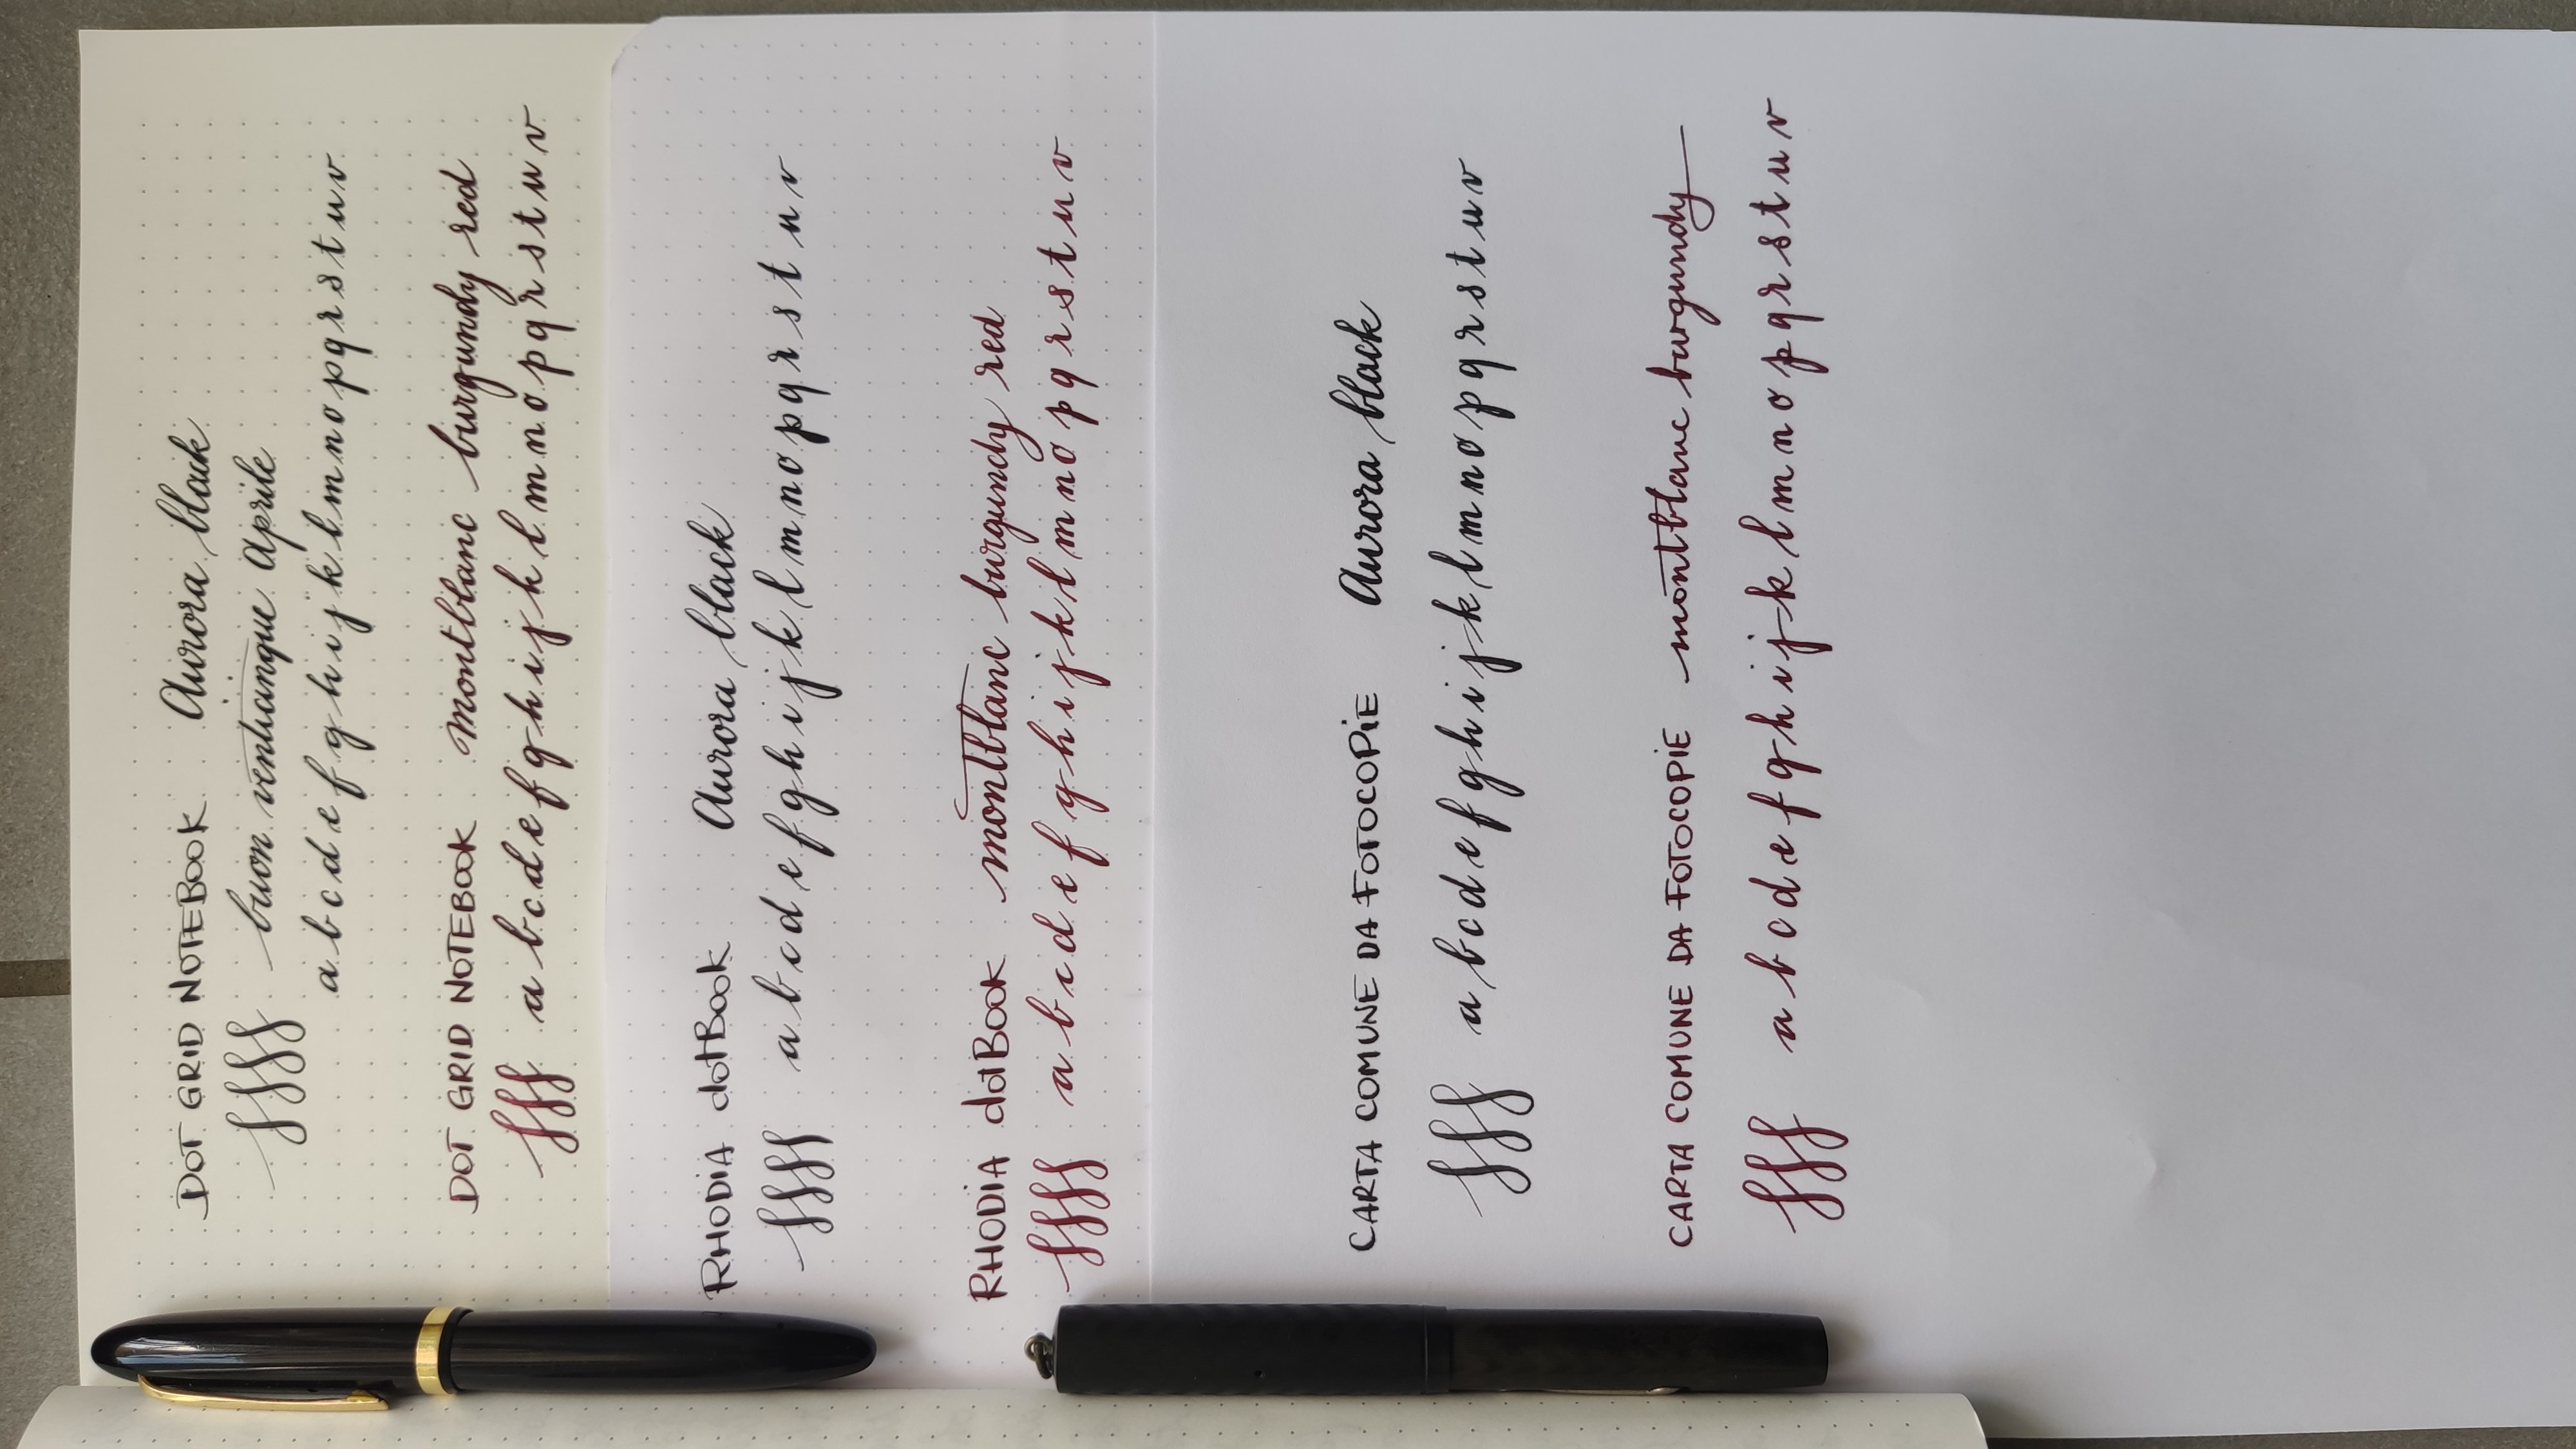 DOT GRID NOTEBOOK Aurora black
ffff buon venticinque aprile
a b c d e f g h i j k l m n o p q r s t u v
DOT GRID NOTEBOOK Montblanc burgundy red
fff a b c d e f g h i j k l m n o p q r s t u v
RHODIA dotBook Aurora black
ffff a b c d e f g h i j k l m n o p q r s t u v
RHODIA dotBook montblanc burgundy red
ffff a b c d e f g h i j k l m n o p q r s t u v
CARTA COMUNE DA FOTOCOPIE Aurora black
fff a b c d e f g h i j k l m n o p q r s t u v
CARTA COMUNE DA FOTOCOPIE montblanc burgundy
fff a b c d e f g h i j k l m n o p q r s t u v